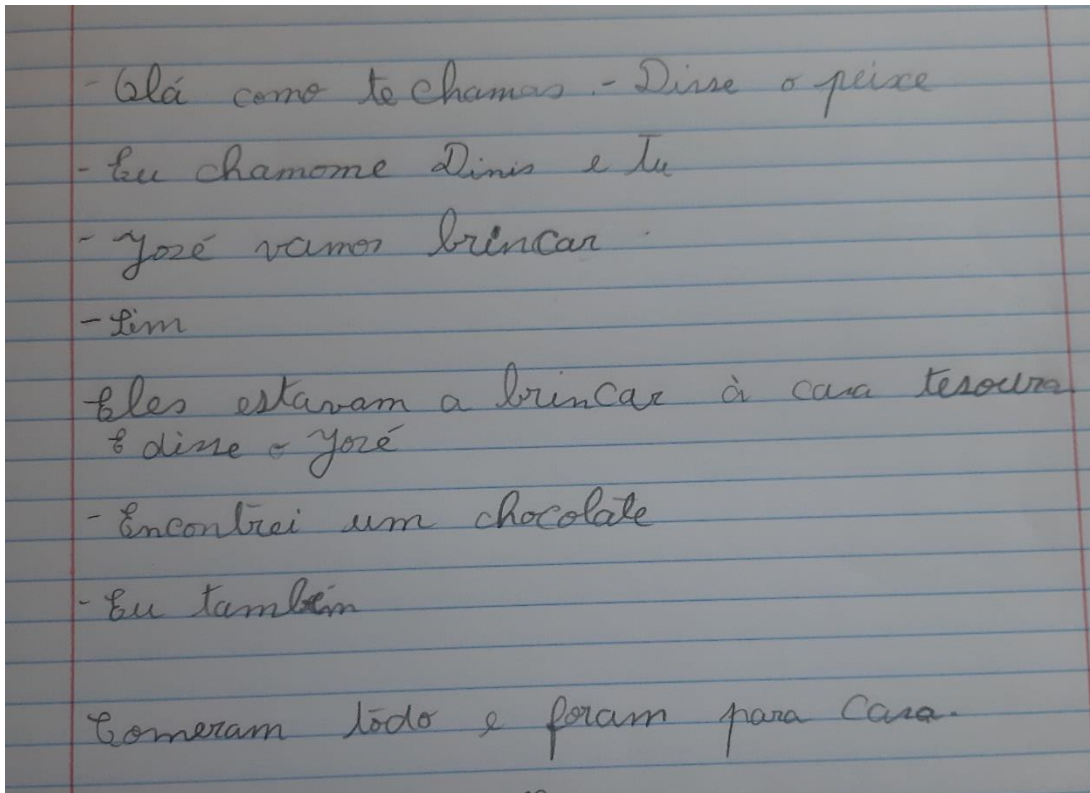 - Olá como te chamas. - Disse o peixe
- Eu chamome Dinis e tu
- José vamos brincar.
- Sim
Eles estavam a brincar à casa tesoura
E disse o José
- Encontrei um chocolate
- Eu também
Comeram tôdo e foram para casa.